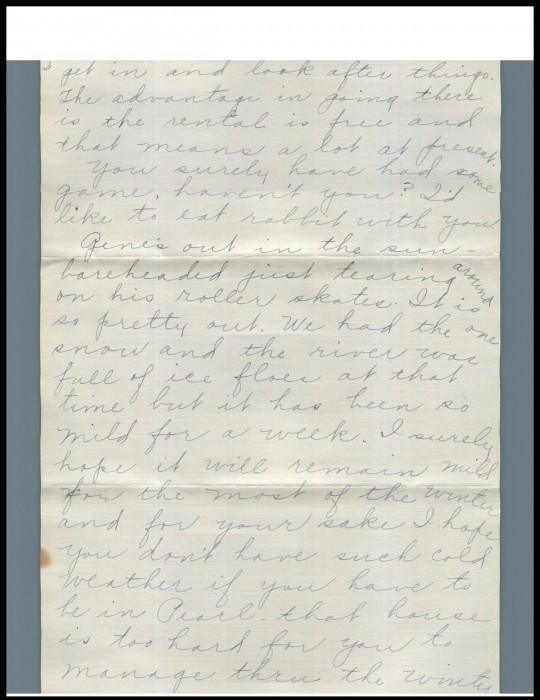 get in and look after things.
The advantage in going there
is the rental is free and
that means a lot at present.
You surely have had some
game, haven't you? I'd
like to eat rabbit with you.
Gene's out in the sun -
bareheaded just tearing around
on his roller skates. It is
so pretty out. We had the one
snow and the river was
full of ice floes at that
time but it has been so
mild for a week. I surely
hope it will remain mild
for the most of the winter
and for your sake I hope
you don't have such cold
weather if you have to
be in Pearl - that house
is too hard for you to
manage thru the winter